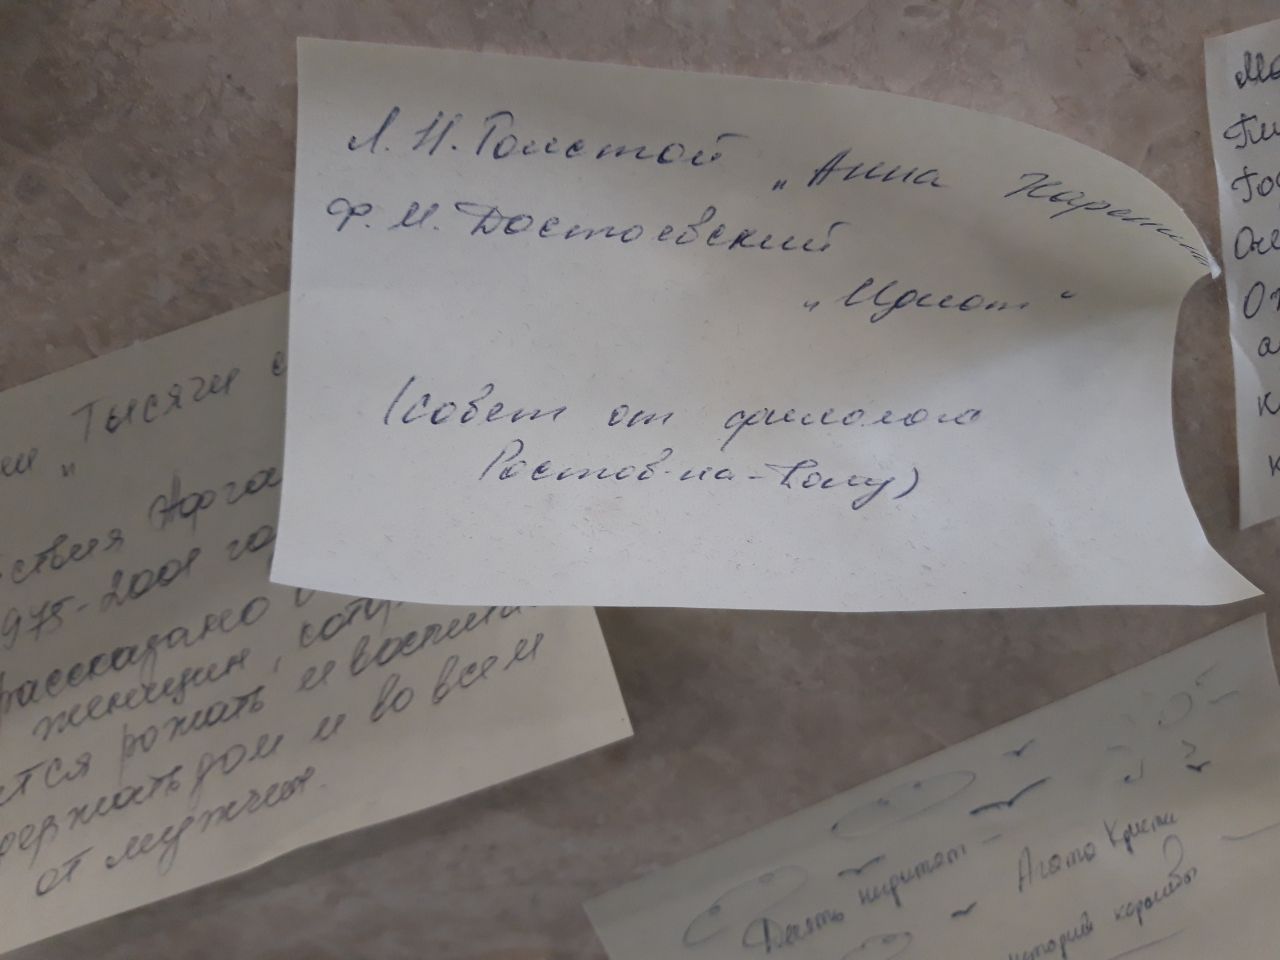 Л. Н. Толстой „Анна Каренин
Ф. М. Достоевский
„Идиот"
(совет от филолога
Ростов-на-Дону)
„Тысячи
ствия Афга
975-2001 го
рассказано
женщин, котор
тся рожать и воспита
держать дом и во всем
от мужчин.
Десять негритят -
Агата Кристи
история корабья
Ма
Гос
От